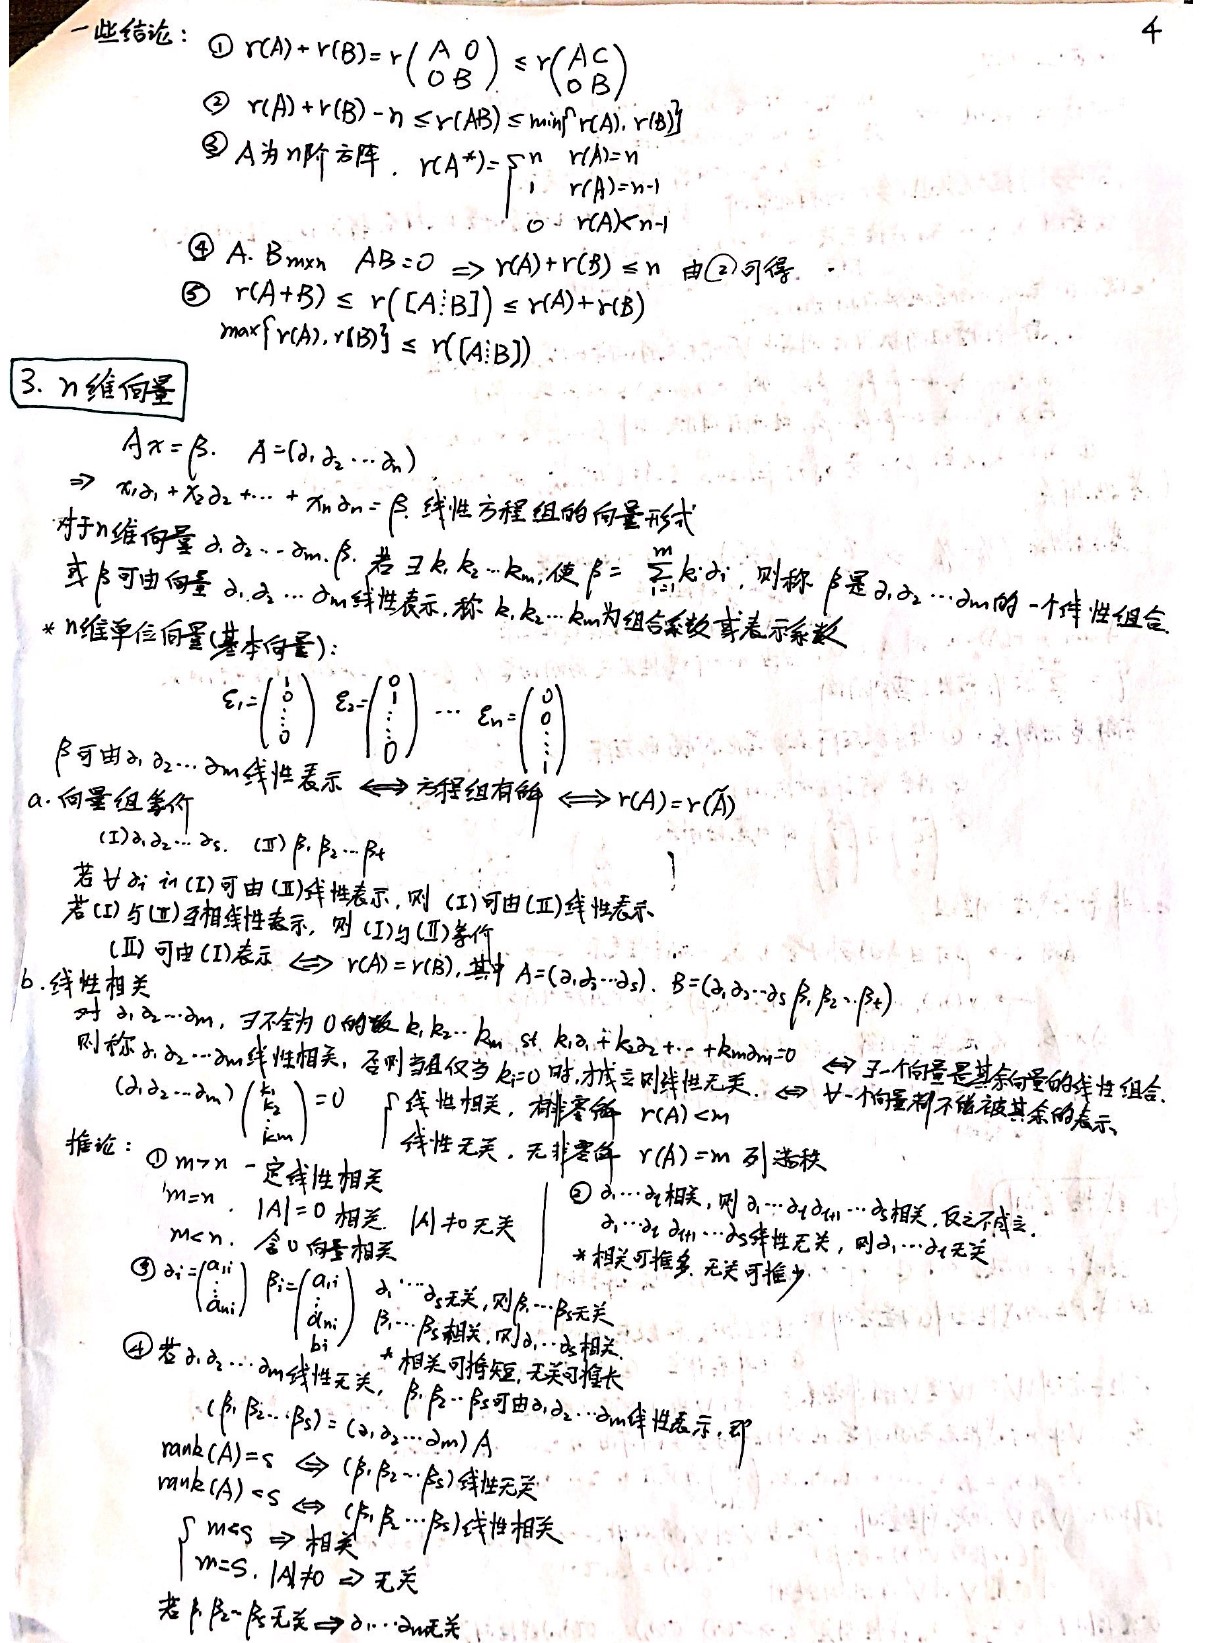 4
一些结论：① r(A)+r(B)=r(A 0 / 0 B) ≤ r(A C / 0 B)
② r(A)+r(B)-n ≤ r(AB) ≤ min{r(A), r(B)}
③ A为n阶方阵. r(A*)={n r(A)=n
1 r(A)=n-1
0 r(A)<n-1
④ A. Bm×n AB=0 ⇒ r(A)+r(B) ≤ n 由②可得.
⑤ r(A+B) ≤ r([A⋮B]) ≤ r(A)+r(B)
max{r(A), r(B)} ≤ r([A⋮B])
3. n维向量
Ax=β. A=(∂₁∂₂⋯∂n)
⇒ x₁∂₁+x₂∂₂+⋯+xn∂n=β. 线性方程组的向量形式
对于n维向量∂₁∂₂⋯∂m.β. 若∃k₁k₂⋯km,使β=∑(i=1,m)ki∂i, 则称β是∂₁∂₂⋯∂m的一个线性组合.
或β可由向量∂₁∂₂⋯∂m线性表示,称k₁k₂⋯km为组合系数或表示系数
* n维单位向量(基本向量):
ε₁=(1 0 ⋮ 0) ε₂=(0 1 ⋮ 0) ⋯ εn=(0 0 ⋮ 1)
β可由∂₁∂₂⋯∂m线性表示 ⇔ 方程组有解 ⇔ r(A)=r(Ã)
a.向量组等价
(I)∂₁∂₂⋯∂s. (II)β₁β₂⋯βt
若∀∂i in(I)可由(II)线性表示,则(I)可由(II)线性表示.
若(I)与(II)互相线性表示,则(I)与(II)等价
(II)可由(I)表示 ⇔ r(A)=r(B),其中A=(∂₁∂₂⋯∂s). B=(∂₁∂₂⋯∂sβ₁β₂⋯βt)
b.线性相关
对∂₁∂₂⋯∂m, ∃不全为0的数k₁k₂⋯km st. k₁∂₁+k₂∂₂+⋯+km∂m=0 ⇔∃一个向量是其余向量的线性组合.
则称∂₁∂₂⋯∂m线性相关, 否则当且仅当ki=0时,才成立则线性无关. ⇔ ∀一个向量都不能被其余的表示.
(∂₁∂₂⋯∂m)(k₁ k₂ ⋮ km)=0 {线性相关, 有非零解 r(A)<m
线性无关, 无非零解 r(A)=m 列满秩
推论: ① m>n 一定线性相关
m=n. |A|=0 相关. |A|≠0 无关
m<n. 含0向量相关
② ∂₁⋯∂t相关,则∂₁⋯∂t∂t+1⋯∂s相关,反之不成立.
∂₁⋯∂t∂t+1⋯∂s线性无关,则∂₁⋯∂t无关
*相关可推多.无关可推少
③ ∂i=(a₁i ⋮ ani) βi=(a₁i ⋮ ani bi) ∂₁⋯∂s无关,则β₁⋯βs无关
β₁⋯βs相关,则∂₁⋯∂s相关.
*相关可推短,无关可推长
④ 若∂₁∂₂⋯∂m线性无关, β₁β₂⋯βs可由∂₁∂₂⋯∂m线性表示,即
(β₁β₂⋯βs)=(∂₁∂₂⋯∂m)A
rank(A)=s ⇔ (β₁β₂⋯βs)线性无关
rank(A)<s ⇔ (β₁β₂⋯βs)线性相关
{m<s ⇒ 相关
m=s. |A|≠0 ⇒ 无关
若β₁β₂⋯βs无关⇒∂₁⋯∂m无关